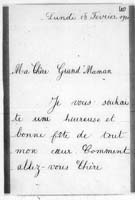 Lundi 18 Février
Ma Chère Grand Maman
Je vous souhai
te une heureuse et
bonne fête de tout
mon cœur Comment
allez-vous Chère